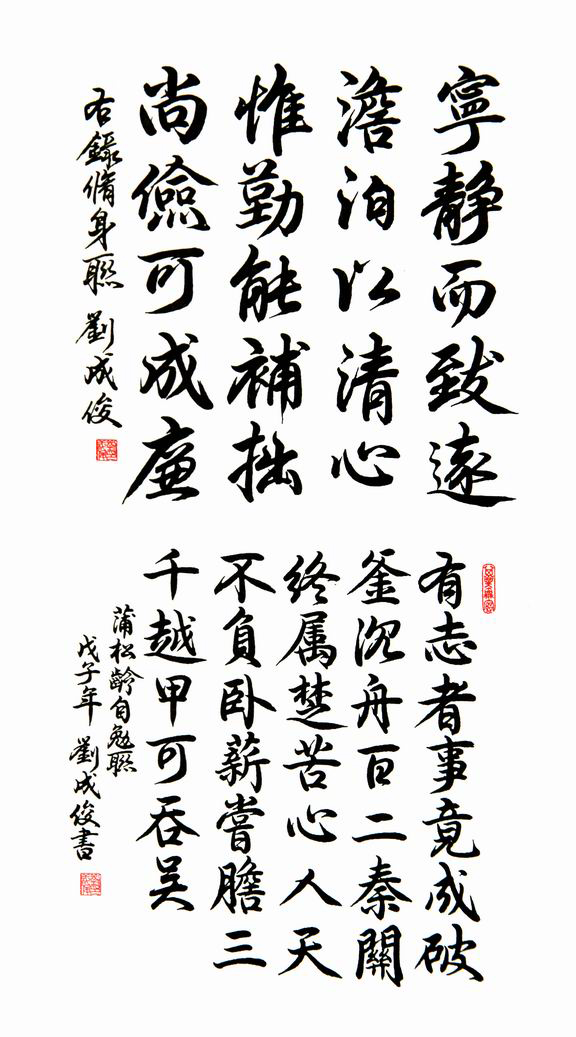 寧静而致遠
澹泊以清心
惟勤能補拙
尚儉可成廉
右錄脩身聯 劉成俊
有志者事竟成破
釜沉舟百二秦關
終属楚苦心人天
不負卧薪嘗膽三
千越甲可吞吴
蒲松齡自勉聯
戊子年 劉成俊書